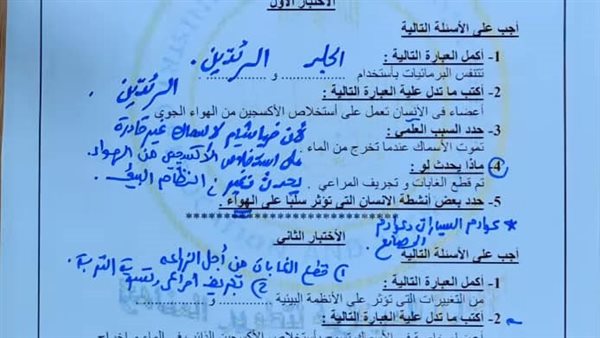 الاختبار الأول
أجب على الأسئلة التالية
1- أكمل العبارة التالية :
تتنفس البرمائيات بأستخدام الجلد و الرئتين.
2- أكتب ما تدل علية العبارة التالية : الرئتين.
أعضاء فى الإنسان تعمل على أستخلاص الأكسجين من الهواء الجوي
3- حدد السبب العلمي :
تموت الأسماك عندما تخرج من الماء
لأن خياشيم الأسماك غير قادرة
على استخلاص الأكسجين من الهواء.
4- ماذا يحدث لو :
تم قطع الغابات و تجريف المراعي يحدث تغير في النظام البيئى
5- حدد بعض أنشطة الانسان التي تؤثر سلبًا على الهواء :
* عوادم السيارات وعوادم
المصانع
الأختبار الثاني
أجب على الأسئلة التالية
1- أكمل العبارة التالية :
① قطع الغابات من أجل الزراعة
② تجريف المراعى التربة.
من التغييرات التى تؤثر على الأنظمة البيئية ............ و ............
2- أكتب ما تدل علية العبارة التالية :